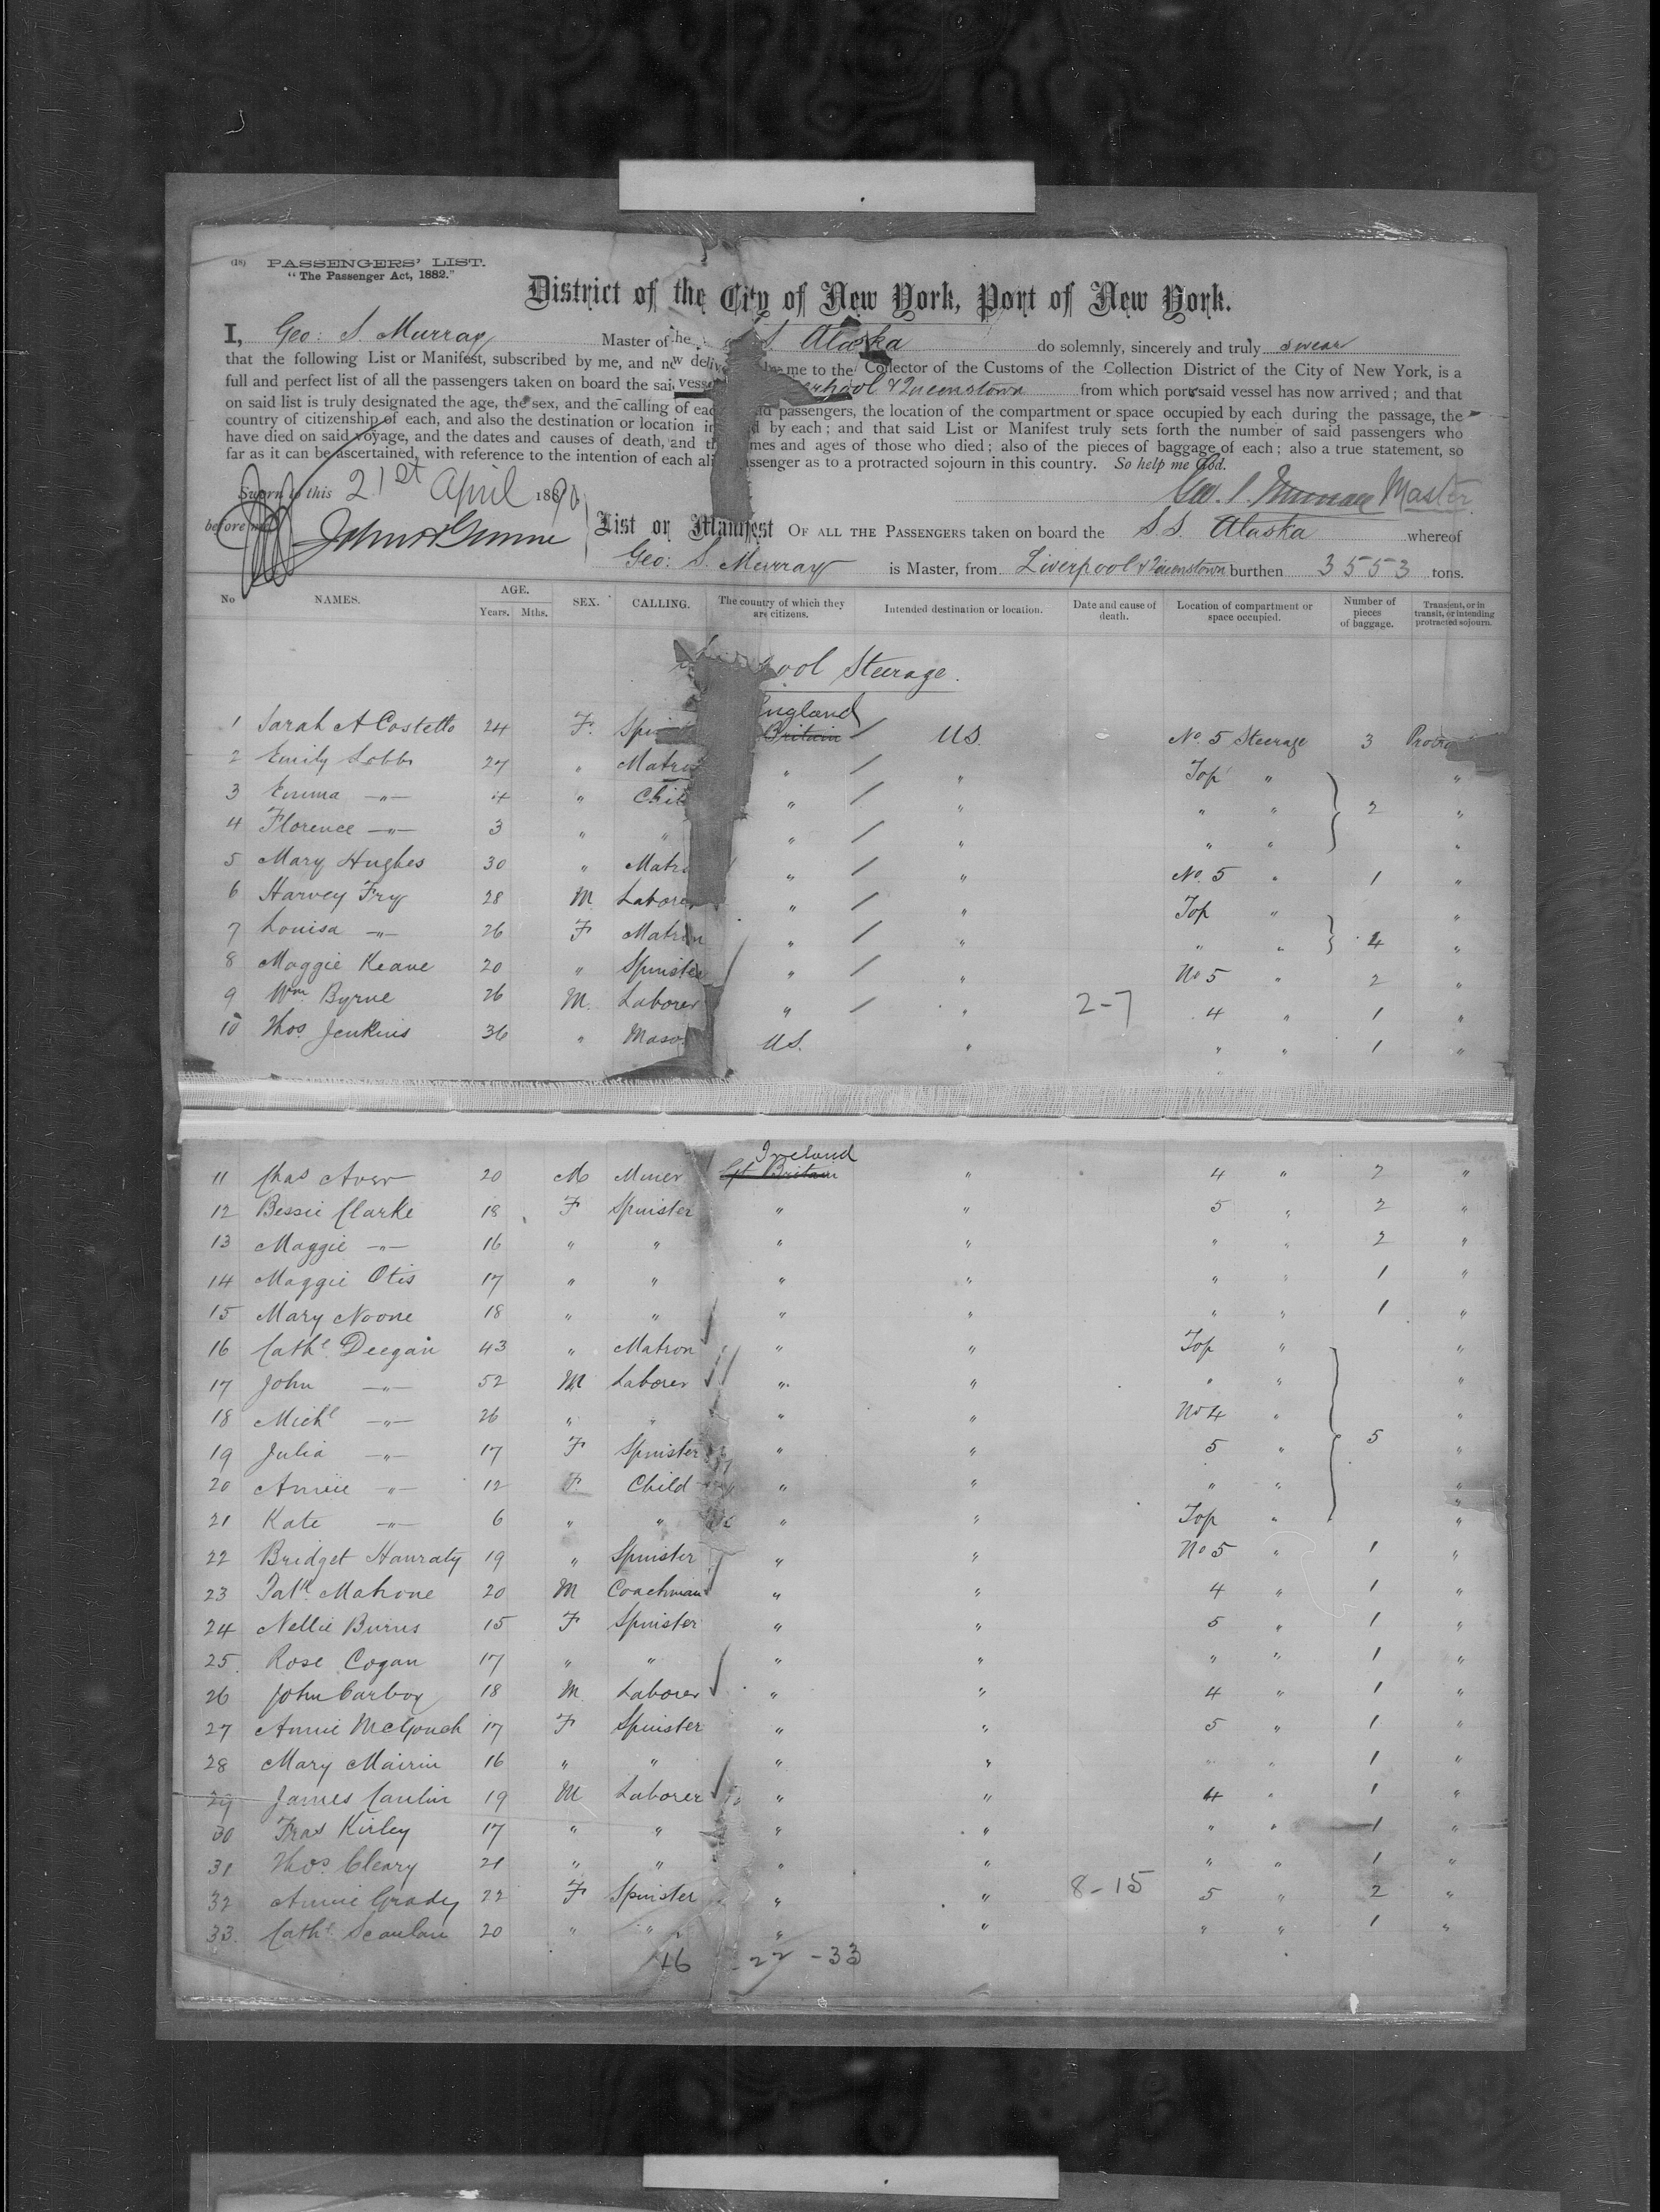 (18) PASSENGERS' LIST.
"The Passenger Act, 1882."
District of the City of New York, Port of New York.
I, Geo: S. Murray Master of the S. Alaska do solemnly, sincerely and truly swear
that the following List or Manifest, subscribed by me, and now deliv me to the Collector of the Customs of the Collection District of the City of New York, is a
full and perfect list of all the passengers taken on board the said vess erpool & Queenstown from which port said vessel has now arrived; and that
on said list is truly designated the age, the sex, and the calling of eac d passengers, the location of the compartment or space occupied by each during the passage, the
country of citizenship of each, and also the destination or location in d by each; and that said List or Manifest truly sets forth the number of said passengers who
have died on said voyage, and the dates and causes of death, and th mes and ages of those who died; also of the pieces of baggage of each; also a true statement, so
far as it can be ascertained, with reference to the intention of each ali assenger as to a protracted sojourn in this country. So help me God.
Sworn to this 21st April 1890 Geo. S. Murray Master
before me
List or Manifest OF ALL THE PASSENGERS taken on board the S.S. Alaska whereof
Geo: S. Murray is Master, from Liverpool & Queenstown burthen 3553 tons.
No NAMES. AGE. Years. Mths. SEX. CALLING. The country of which they are citizens. Intended destination or location. Date and cause of death. Location of compartment or space occupied. Number of pieces of baggage. Transient, or in transit, or intending protracted sojourn.
ool Steerage.
England
1 Sarah A Costello 24 F. Spin Britain / U.S. No. 5 Steerage 3
2 Emily Lobb 27 " Matro " / " Top " "
3 Emma —"— 4 " Chil " / " " " 2 "
4 Florence —"— 3 " " " / " " " "
5 Mary Hughes 30 " Matro " / " No. 5 " 1 "
6 Harvey Fry 28 M. Laborer " / " Top " "
7 Louisa —"— 26 F Matron " / " " " 4 "
8 Maggie Keane 20 " Spinster " / " No 5 " 2 "
9 Wm Byrne 26 M. Laborer " / " 2-7 4 " 1 "
10 Thos. Jenkins 36 " Maso U.S. " " " 1 "
Ireland
11 Chas 20 M Miner Gt Britain " 4 " 2 "
12 Bessie Clarke 18 F Spinster " " 5 " 2 "
13 Maggie —"— 16 " " " " " " 2 "
14 Maggie Otis 17 " " " " " " 1 "
15 Mary Noone 18 " " " " " " 1 "
16 Cathe Deegan 43 " Matron " " Top " "
17 John —"— 52 M Laborer " " " " "
18 Michl —"— 26 " " " " No 4 " "
19 Julia —"— 17 F Spinster " " 5 " 5 "
20 Annie —"— 12 F. Child " " " " "
21 Kate —"— 6 " " " " Top " "
22 Bridget Hanraty 19 " Spinster " " No 5 " 1 "
23 Patk. Mahone 20 M Coachman " " 4 " 1 "
24 Nellie Burns 15 F Spinster " " 5 " 1 "
25 Rose Cogan 17 " " " " " " 1 "
26 John Carboy 18 M Laborer " " 4 " 1 "
27 Annie McGouch 17 F Spinster " " 5 " 1 "
28 Mary Mairin 16 " " " " " " 1 "
29 James 19 M Laborer " " 4 " 1 "
30 Fras Kirley 17 " " " " " " 1 "
31 Thos. Cleary 21 " " " " " " 1 "
32 Annie Grady 22 F Spinster " " 8-15 5 " 2 "
33. Cathe Scanlan 20 " " " " " " 1 "
16 22 - 33